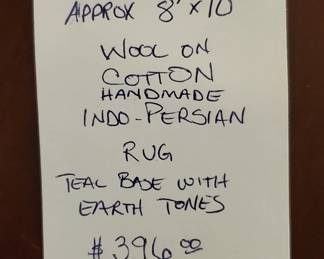 APPROX 8' x 10'
WOOL ON
COTTON
HANDMADE
INDO-PERSIAN
RUG
TEAL BASE WITH
EARTH TONES
$396.00